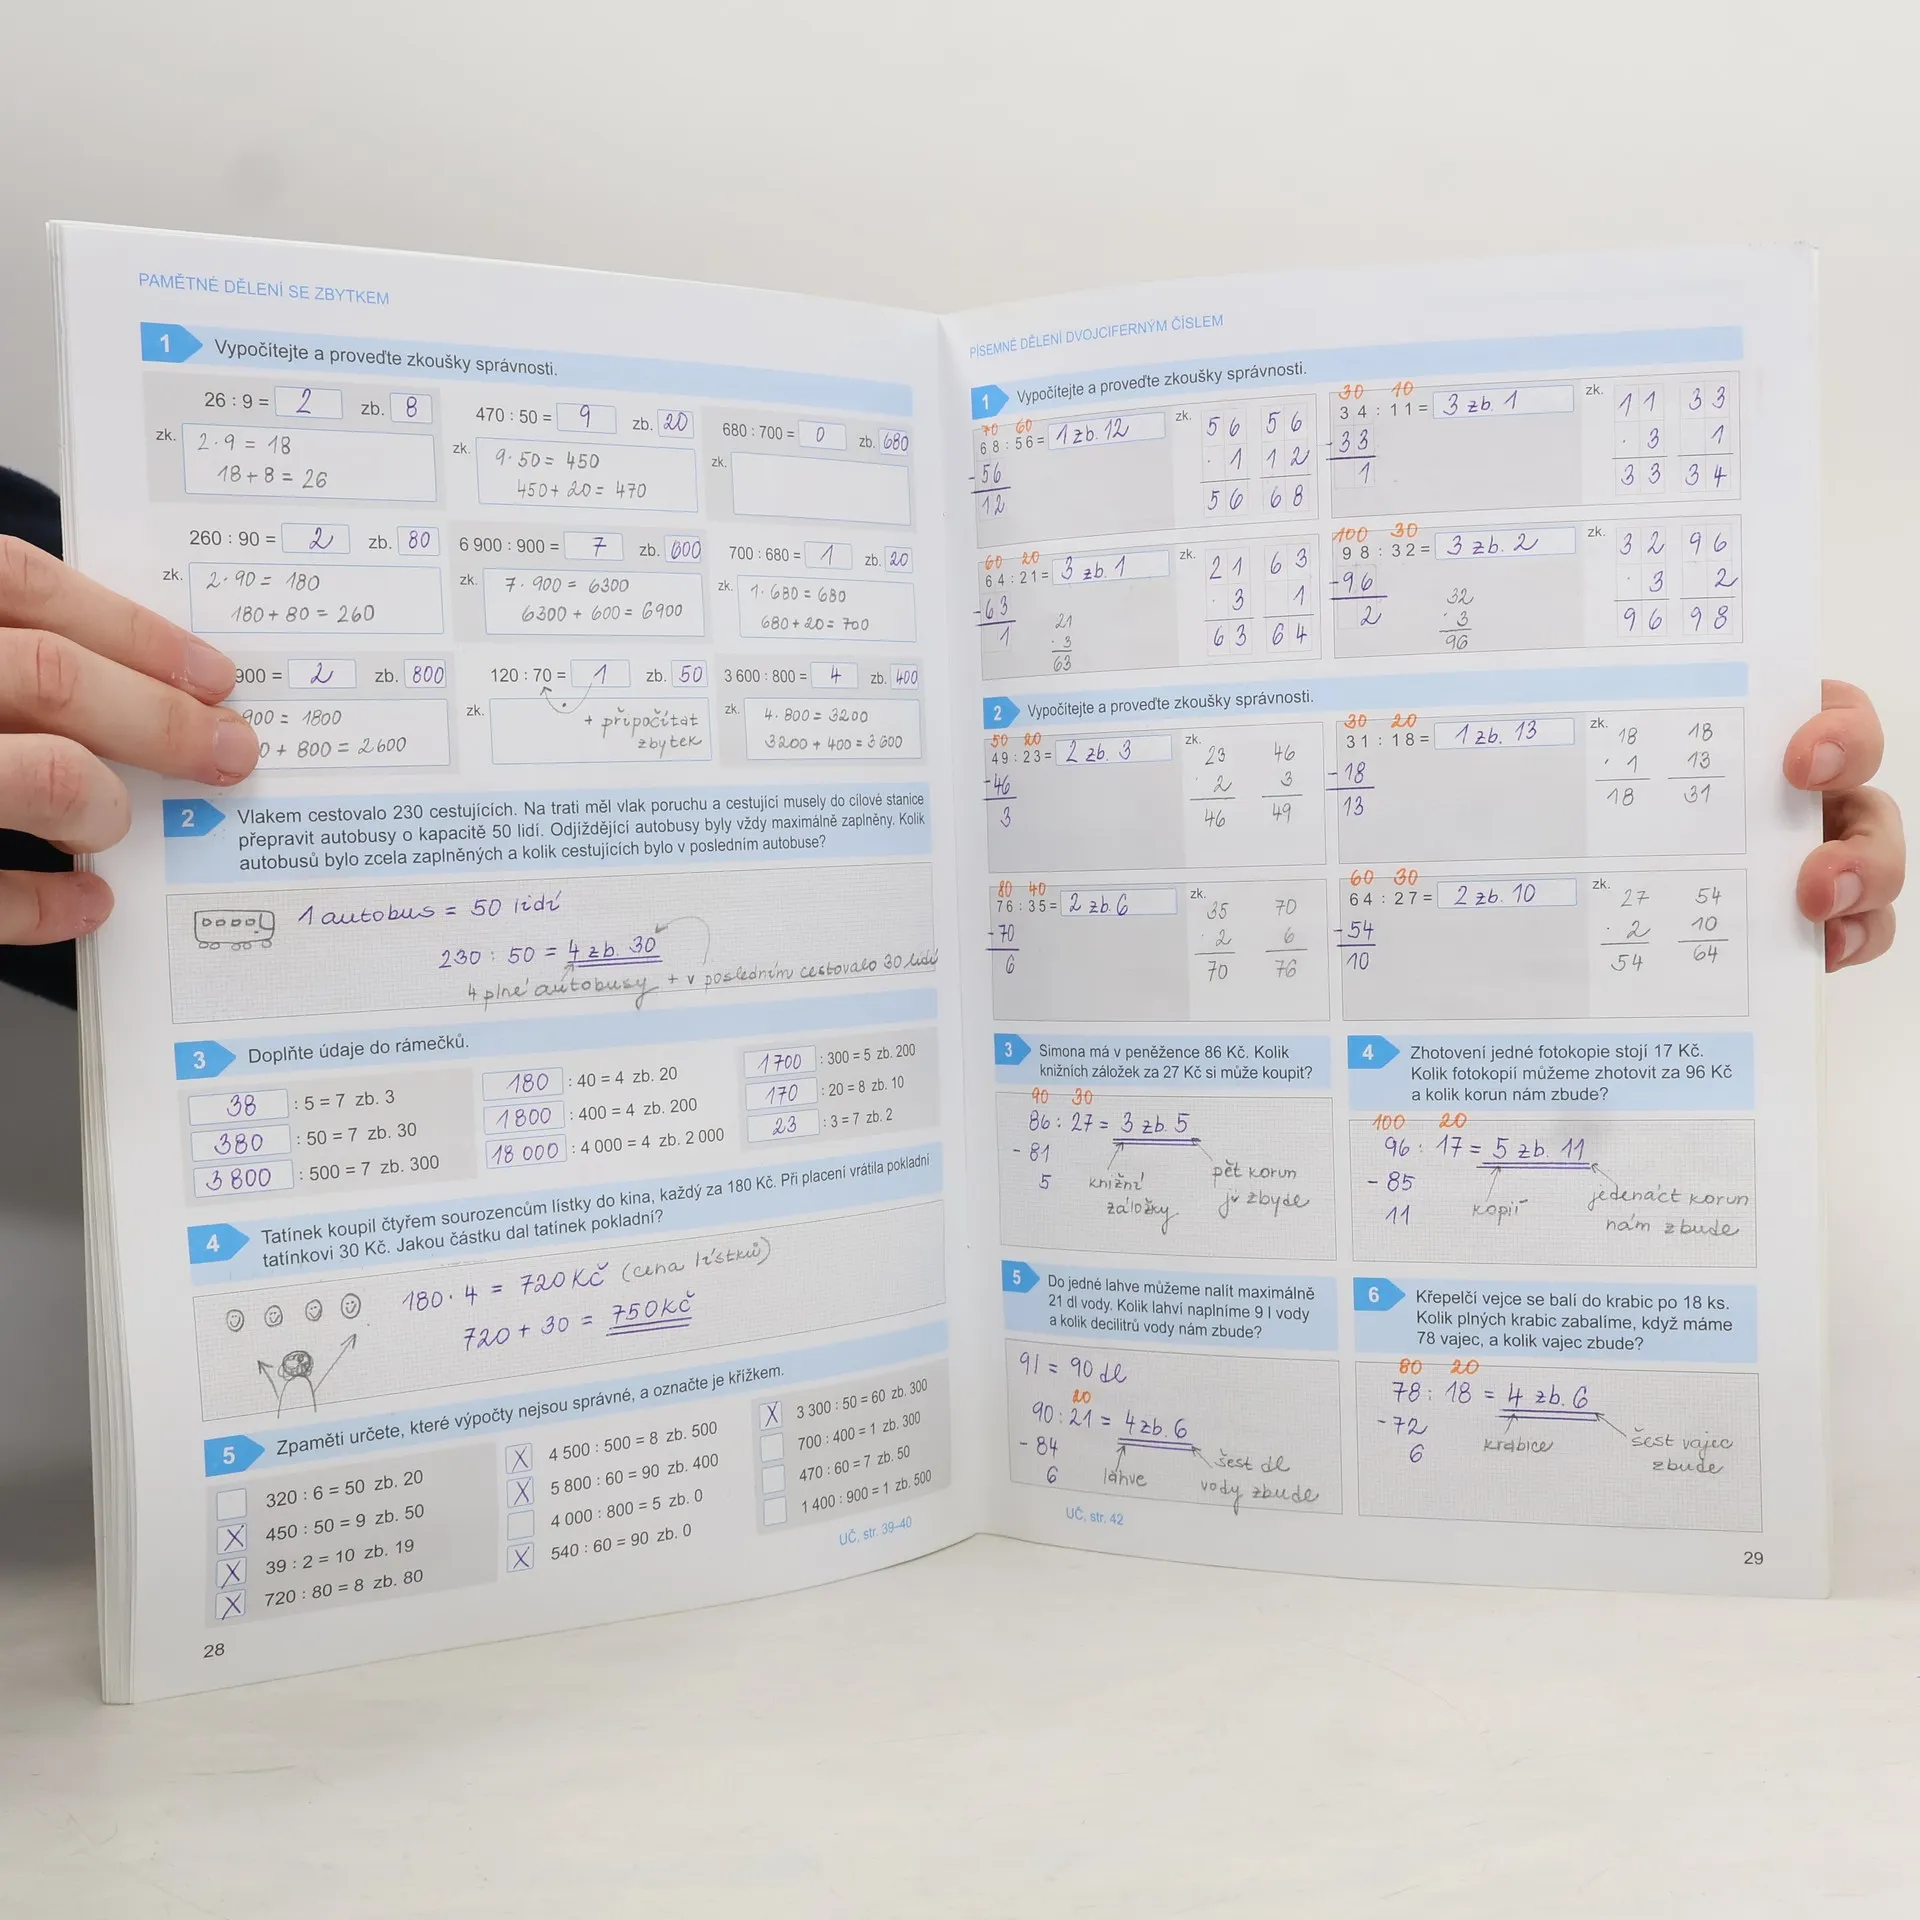 PAMĚTNÉ DĚLENÍ SE ZBYTKEM
1 Vypočítejte a proveďte zkoušky správnosti.
26 : 9 = 2 zb. 8
zk. 2 · 9 = 18
18 + 8 = 26
470 : 50 = 9 zb. 20
zk. 9 · 50 = 450
450 + 20 = 470
680 : 700 = 0 zb. 680
zk.
260 : 90 = 2 zb. 80
zk. 2 · 90 = 180
180 + 80 = 260
6 900 : 900 = 7 zb. 600
zk. 7 · 900 = 6300
6300 + 600 = 6900
700 : 680 = 1 zb. 20
zk. 1 · 680 = 680
680 + 20 = 700
900 = 2 zb. 800
900 = 1800
0 + 800 = 2600
120 : 70 = 1 zb. 50
zk. + připočítat
zbytek
3 600 : 800 = 4 zb. 400
zk. 4 · 800 = 3200
3200 + 400 = 3600
2 Vlakem cestovalo 230 cestujících. Na trati měl vlak poruchu a cestující musely do cílové stanice
přepravit autobusy o kapacitě 50 lidí. Odjíždějící autobusy byly vždy maximálně zaplněny. Kolik
autobusů bylo zcela zaplněných a kolik cestujících bylo v posledním autobuse?
1 autobus = 50 lidí
230 : 50 = 4 zb. 30
4 plné autobusy + v posledním cestovalo 30 lidí
3 Doplňte údaje do rámečků.
38 : 5 = 7 zb. 3
380 : 50 = 7 zb. 30
3 800 : 500 = 7 zb. 300
180 : 40 = 4 zb. 20
1 800 : 400 = 4 zb. 200
18 000 : 4 000 = 4 zb. 2 000
1700 : 300 = 5 zb. 200
170 : 20 = 8 zb. 10
23 : 3 = 7 zb. 2
4 Tatínek koupil čtyřem sourozencům lístky do kina, každý za 180 Kč. Při placení vrátila pokladní
tatínkovi 30 Kč. Jakou částku dal tatínek pokladní?
180 · 4 = 720 Kč (cena lístků)
720 + 30 = 750 Kč
5 Zpaměti určete, které výpočty nejsou správné, a označte je křížkem.
320 : 6 = 50 zb. 20
X 450 : 50 = 9 zb. 50
X 39 : 2 = 10 zb. 19
X 720 : 80 = 8 zb. 80
X 4 500 : 500 = 8 zb. 500
X 5 800 : 60 = 90 zb. 400
4 000 : 800 = 5 zb. 0
X 540 : 60 = 90 zb. 0
X 3 300 : 50 = 60 zb. 300
700 : 400 = 1 zb. 300
470 : 60 = 7 zb. 50
1 400 : 900 = 1 zb. 500
UČ, str. 39–40
28
PÍSEMNÉ DĚLENÍ DVOJCIFERNÝM ČÍSLEM
1 Vypočítejte a proveďte zkoušky správnosti.
70 60
68 : 56 = 1 zb. 12
-56
12
zk. 56 56
· 1 12
56 68
30 10
34 : 11 = 3 zb. 1
-33
1
zk. 11 33
· 3 1
33 34
60 20
64 : 21 = 3 zb. 1
-63
1
21
· 3
63
zk. 21 63
· 3 1
63 64
100 30
98 : 32 = 3 zb. 2
-96
2
32
· 3
96
zk. 32 96
· 3 2
96 98
2 Vypočítejte a proveďte zkoušky správnosti.
50 20
49 : 23 = 2 zb. 3
-46
3
zk. 23 46
· 2 3
46 49
30 20
31 : 18 = 1 zb. 13
-18
13
zk. 18 18
· 1 13
18 31
80 40
76 : 35 = 2 zb. 6
-70
6
zk. 35 70
· 2 6
70 76
60 30
64 : 27 = 2 zb. 10
-54
10
zk. 27 54
· 2 10
54 64
3 Simona má v peněžence 86 Kč. Kolik
knižních záložek za 27 Kč si může koupit?
90 30
86 : 27 = 3 zb. 5
- 81
5
knižní
záložky
pět korun
jí zbyde
4 Zhotovení jedné fotokopie stojí 17 Kč.
Kolik fotokopií můžeme zhotovit za 96 Kč
a kolik korun nám zbude?
100 20
96 : 17 = 5 zb. 11
- 85
11
kopií
jedenáct korun
nám zbude
5 Do jedné lahve můžeme nalít maximálně
21 dl vody. Kolik lahví naplníme 9 l vody
a kolik decilitrů vody nám zbude?
9l = 90 dl
20
90 : 21 = 4 zb. 6
- 84
6
láhve
šest dl
vody zbude
6 Křepelčí vejce se balí do krabic po 18 ks.
Kolik plných krabic zabalíme, když máme
78 vajec, a kolik vajec zbude?
80 20
78 : 18 = 4 zb. 6
-72
6
krabice
šest vajec
zbude
UČ, str. 42
29